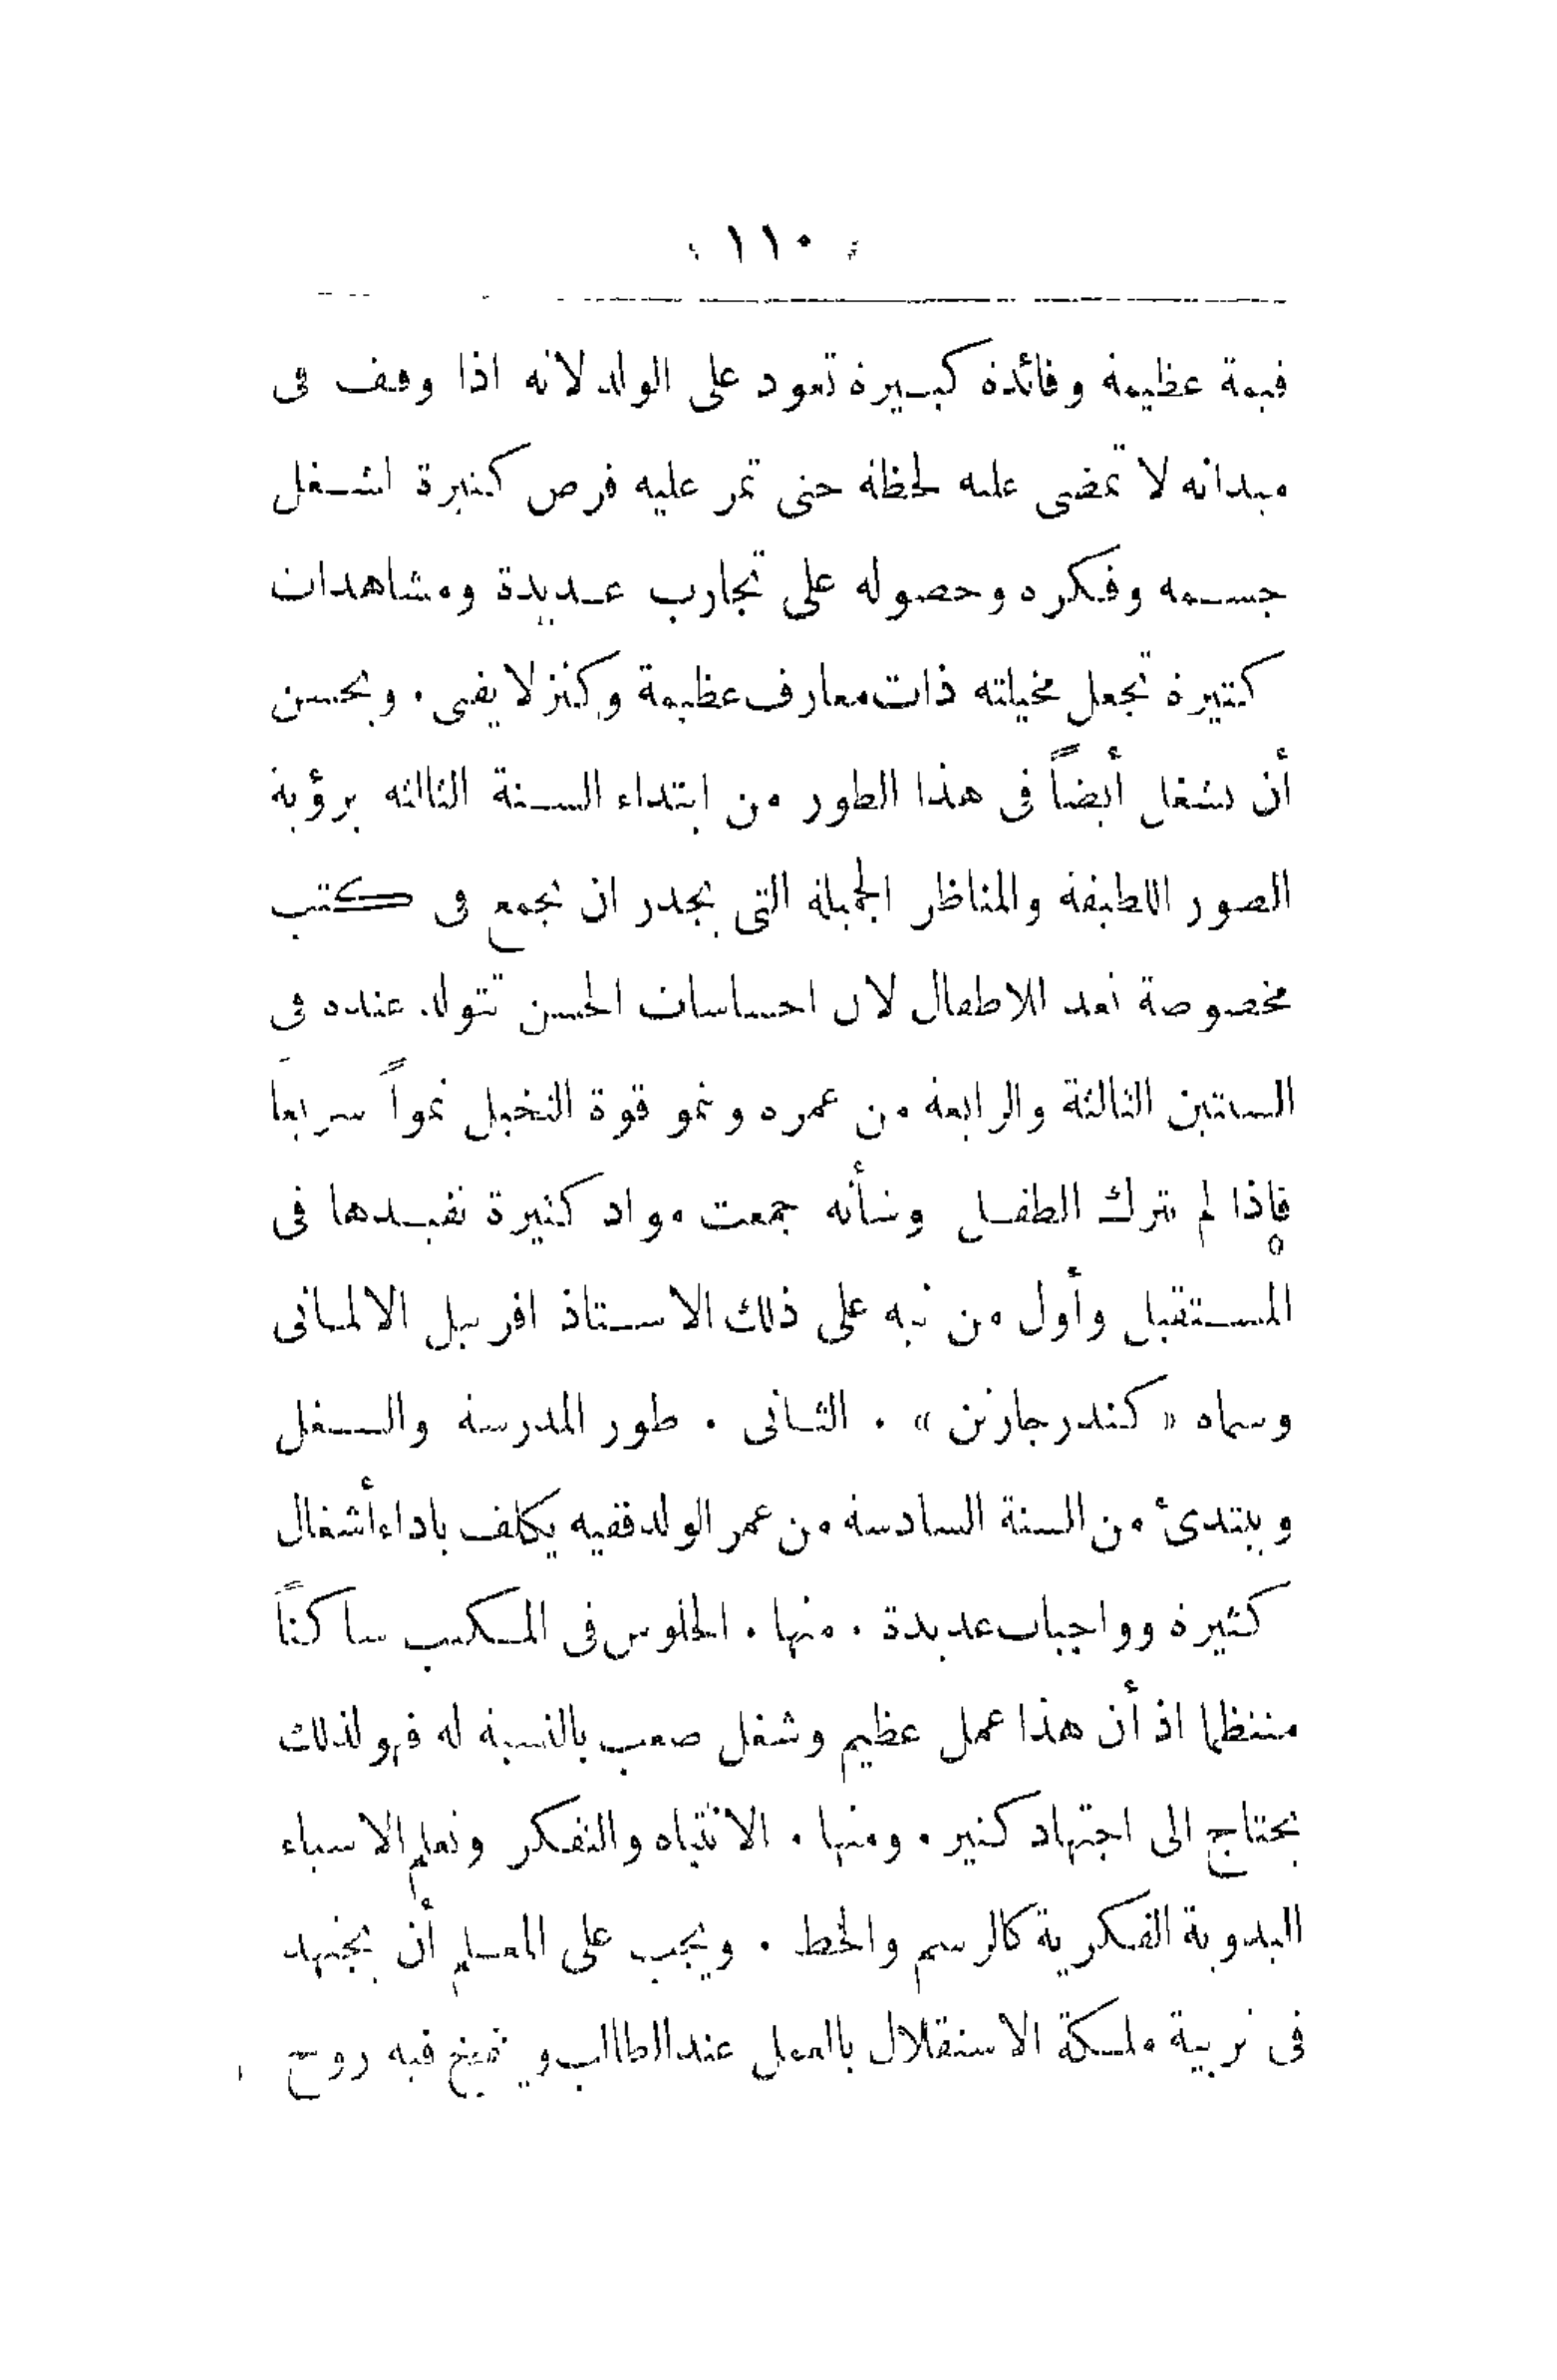 ١١٠
قيمة عظيمة وفائدة كبيرة تعود على الولد لانه اذا وقف فى
ميدانه لا تمضى عليه لحظة حتى تمر عليه فرص كثيرة لشغل
جسمه وفكره وحصوله على تجارب عديدة ومشاهدات
كثيرة تجعل مخيلته ذات معارف عظيمة وكنز لا يفنى . ويحسن
أن يشغل أيضاً فى هذا الطور من ابتداء السنة الثالثة برؤية
الصور اللطيفة والمناظر الجميلة التى يجدر ان تجمع فى كتب
مخصوصة تعد للاطفال لان احساسات الحسن تتولد عنده فى
السنتين الثالثة والرابعة من عمره وتنمو قوة التخيل نمواً سريعاً
فاذا لم تترك الطفل وشأنه جمعت مواد كثيرة تفيدها فى
المستقبل وأول من نبه على ذلك الاستاذ افربيل الالمانى
وسماه « كندرجارتن » . الثانى . طور المدرسة والشغل
ويبتدئ من السنة السادسة من عمر الولد ففيه يكلف باداء أشغال
كثيرة وواجبات عديدة . منها . الجلوس فى المكتب ساكناً
منتظما اذ أن هذا عمل عظيم وشغل صعب بالنسبة له فهو لذلك
يحتاج الى اجتهاد كثير . ومنها . الانتباه والتفكر وتعلم الاشياء
اليدوية الفكرية كالرسم والخط . ويجب على المعلم أن يجتهد
فى تربية ملكة الاستقلال بالعمل عند الطالب وينفخ فيه روح